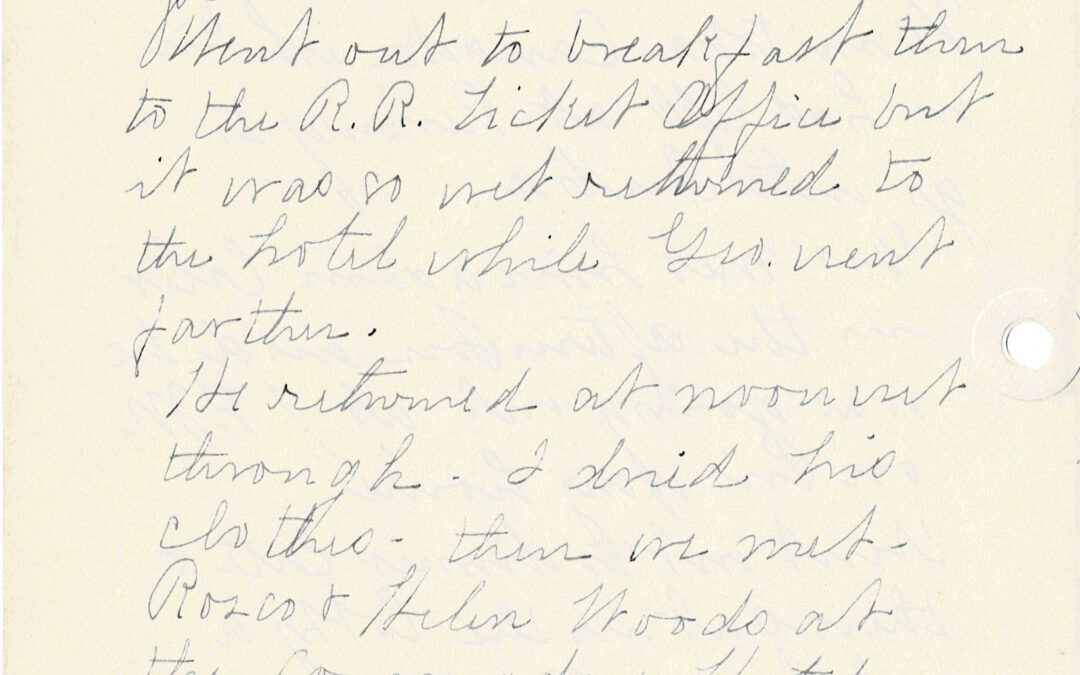 Went out to breakfast then
to the R.R. Ticket Office but
it was so wet returned to
the hotel while Geo. went
farther.
He returned at noon wet
through - I dried his
clothes - then we met -
Rosco & Helen Woods at
the Commodore Hotel